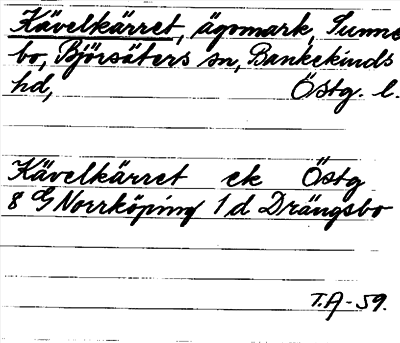 Kävelkärret, ägomark, Sunne
bo, Björsäters sn, Bankekinds
hd, Östg. l.
Kävelkärret ek Östg
8 G Norrköping 1 d Drängsbo
T.A-59.